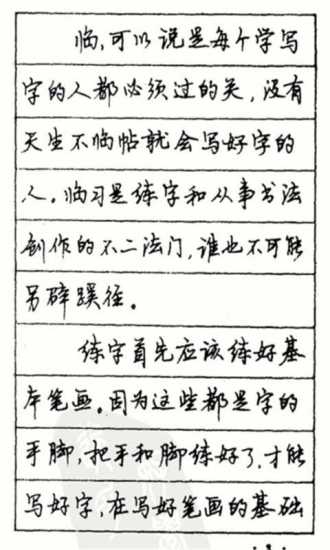 临,可以说是每个学写
字的人都必须过的关,没有
天生不临帖就会写好字的
人。临习是练字和从事书法
创作的不二法门,谁也不可能
另辟蹊径。
练字首先应该练好基
本笔画。因为这些都是字的
手脚,把手和脚练好了,才能
写好字,在写好笔画的基础